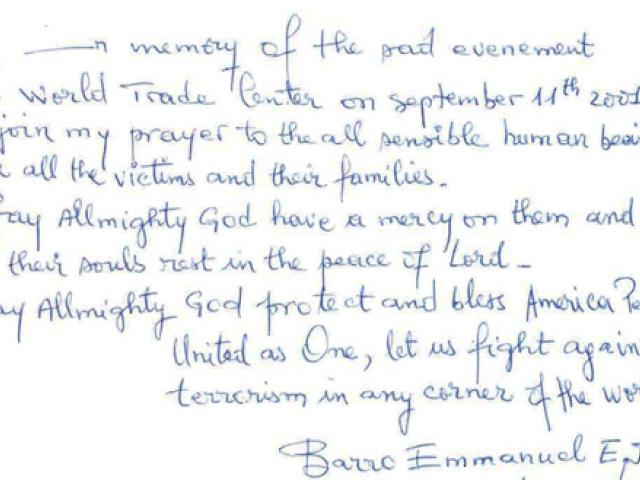 n memory of the sad evenement
World Trade Center on september 11th 2001
join my prayer to the all sensible human bei
all the victims and their families.
ay Allmighty God have a mercy on them and
their souls rest in the peace of Lord_
ay Allmighty God protect and bless America
United as One, let us fight again
terrorism in any corner of the wor
Barro Emmanuel E.